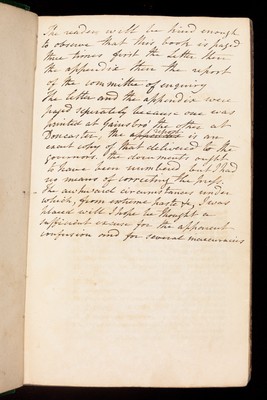 The reader will be kind enough
to observe that this book is paged
three times first the letter then
the appendix then the report
of the committee of enquiry
the letter and the appendix were
paged separately because one was
printed at Gainsbro' the other at
Doncaster, the report is an
exact copy of that delivered to the
governors. The documents ought
to have been numbered but I had
no means of correcting the press.
The awkward circumstances under
which, from extreme &c, I was
placed will I hope be thought a
sufficient excuse for the apparent
confusion and for several inaccuracies